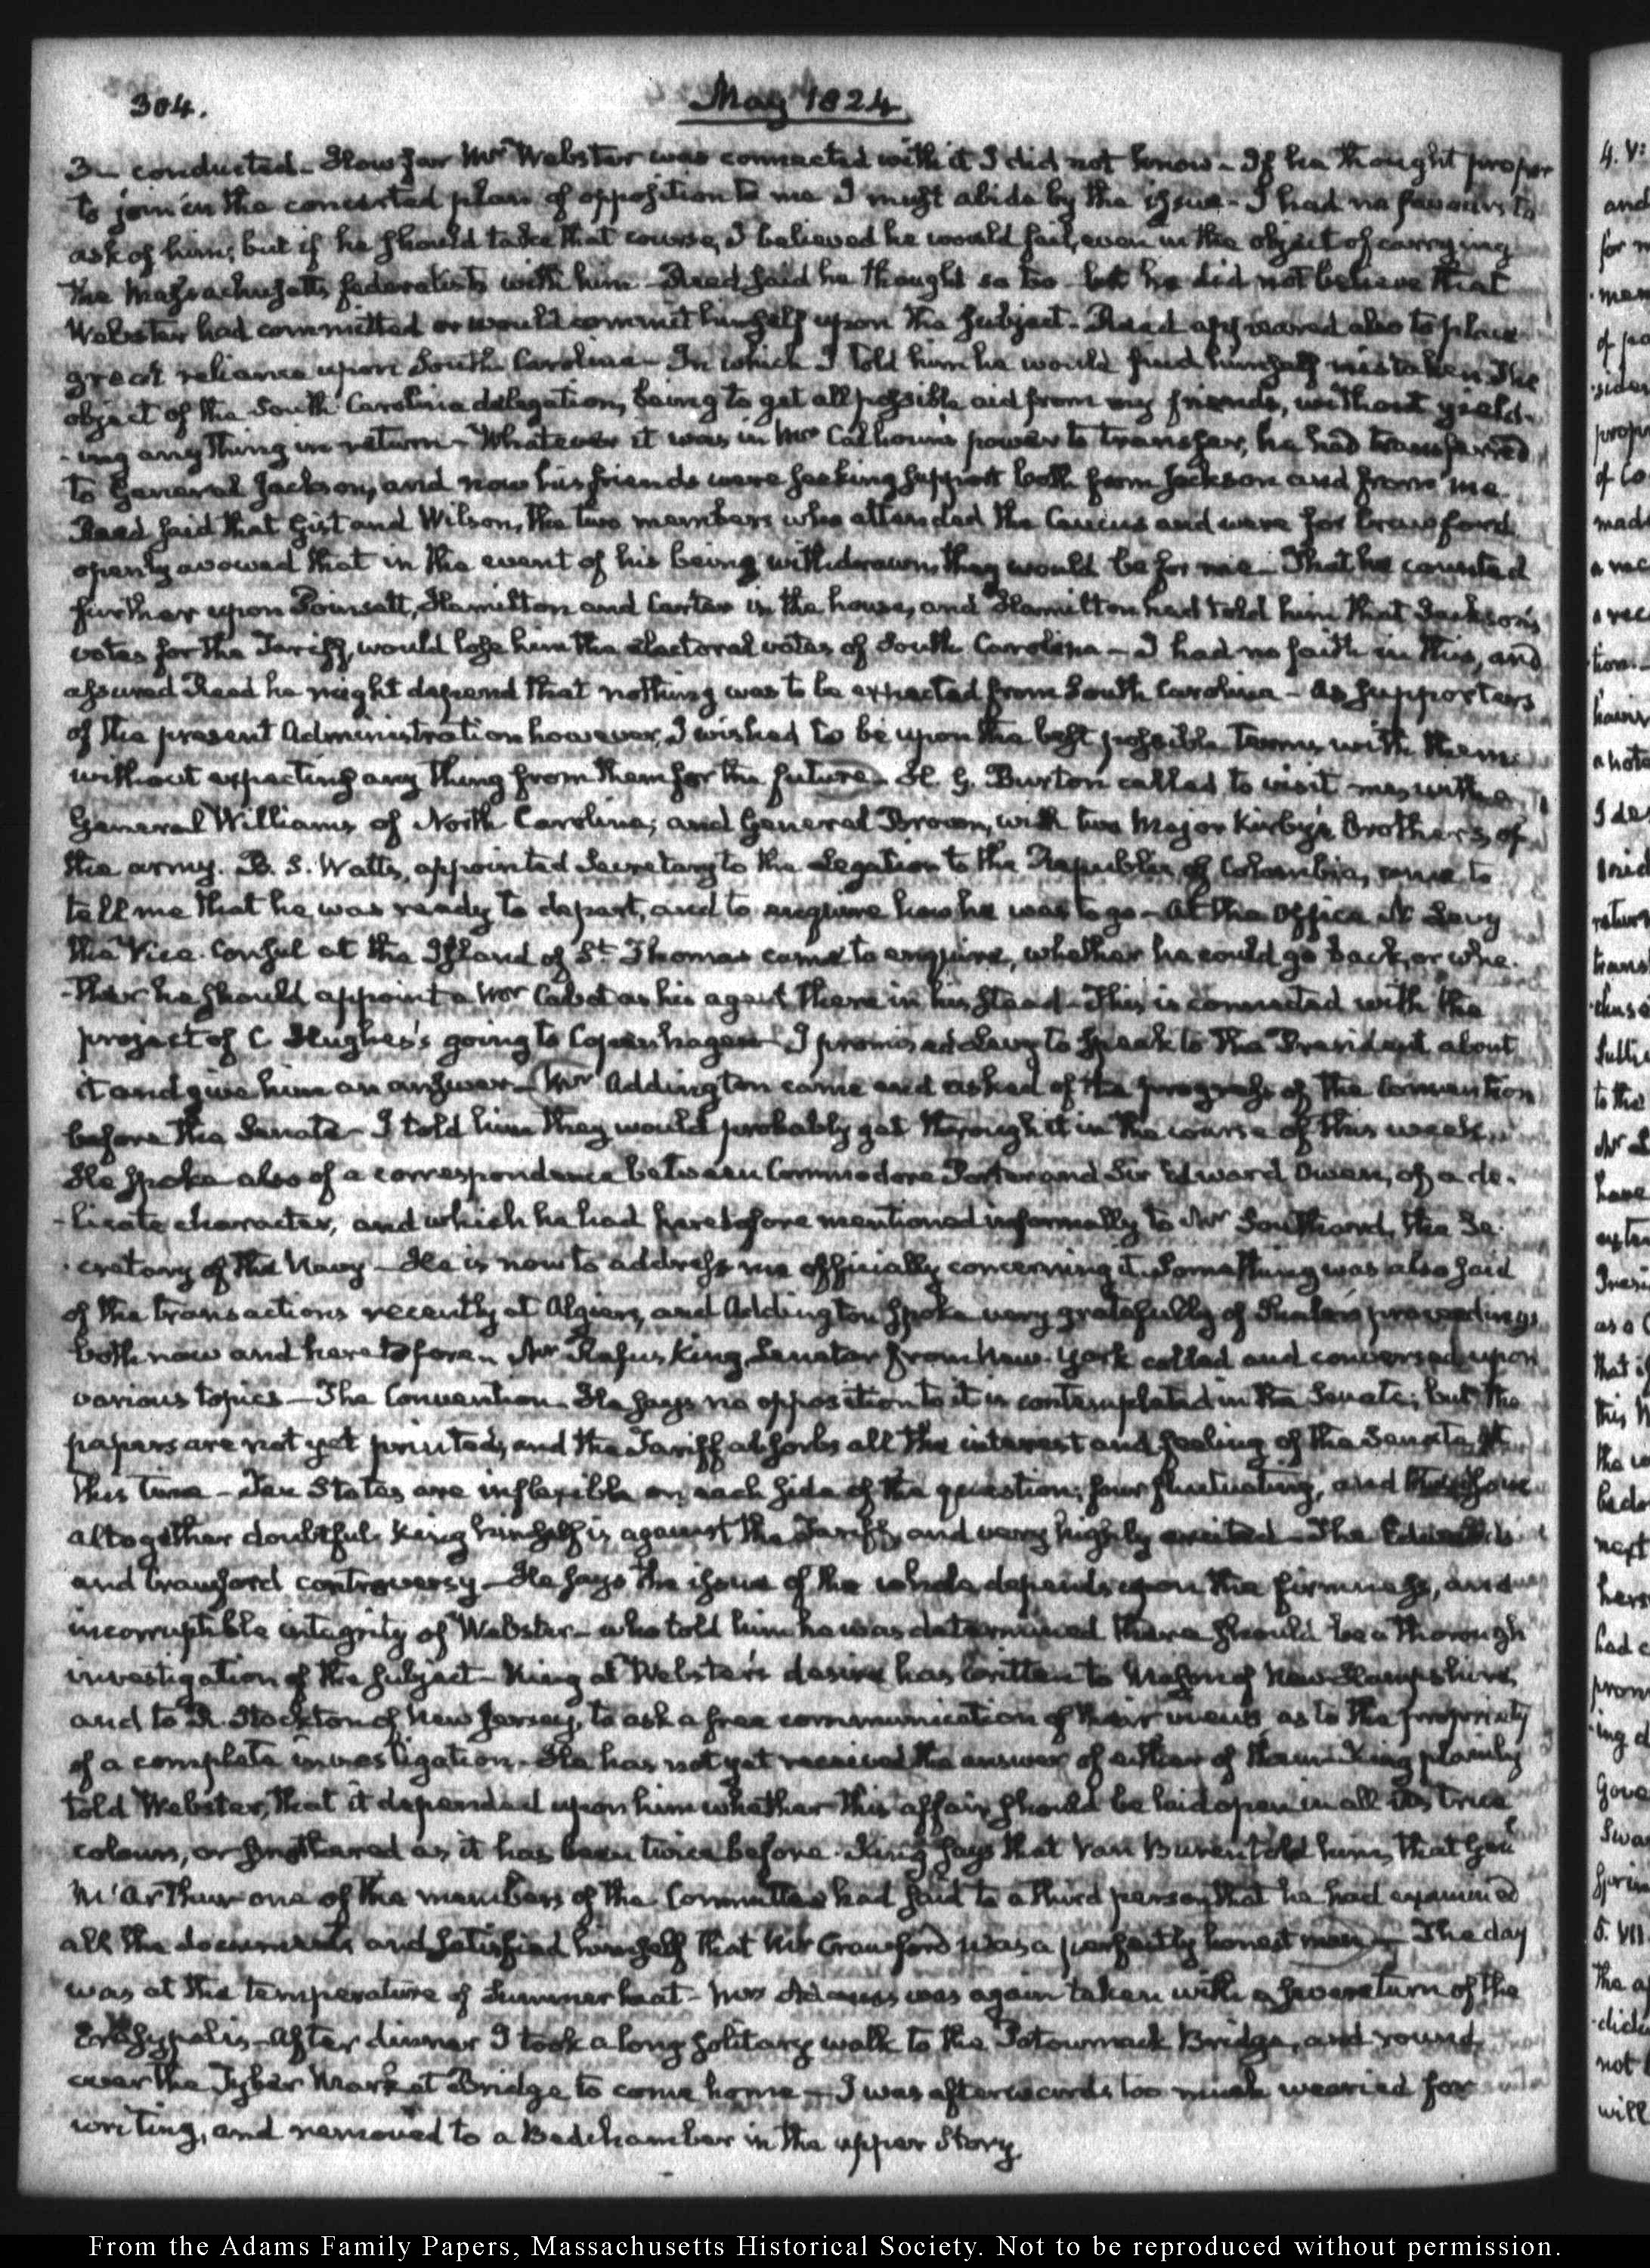 304.
May 1824
3— conducted— How far Mr Webster was connected with it I did not know— If he thought proper
to join in the concerted plan of opposition to me I must abide by the issue— I had no favours to
ask of him; but if he should take that course, I believed he would fail, even in the object of carrying
the Massachusetts federalists with him— Reed said he thought so too— but he did not believe that
Webster had committed or would commit himself upon the subject— Reed appeared also to place
great reliance upon South Carolina— In which I told him he would find himself mistaken. The
object of the South Carolina delegation, being to get all possible aid from my friends, without yield-
-ing any thing in return— Whatever it was in Mr Calhoun's power to transfer, he had transferred
to General Jackson, and now his friends were seeking support both from Jackson and from me.
Reed said that Gist and Wilson, the two members who attended the Caucus and were for Crawford
openly avowed that in the event of his being withdrawn they would be for me— That he counted
further upon Poinsett, Hamilton and Carter in the house, and Hamilton had told him that Jackson's
votes for the Tariff, would lose him the electoral votes of South Carolina— I had no faith in this, and
assured Reed he might depend that nothing was to be expected from South Carolina— As supporters
of the present Administration however, I wished to be upon the best possible terms with them
without expecting any thing from them for the future— H. G. Burton called to visit me, with a
General Williams of North Carolina; and General Brown, with two Major Kirby's Brothers, of
the army. B. S. Watts, appointed Secretary to the Legation to the Republic of Colombia, came to
tell me that he was ready to depart, and to enquire how he was to go— At the Office N. Levy
the Vice-Consul at the Island of St. Thomas came to enquire, whether he could go back, or whe-
-ther he should appoint a Mr Cabot as his agent there in his stead— This is connected with the
project of C Hughes's going to Copenhagen— I promised Levy to speak to the President about
it and give him an answer— Mr Addington came and asked of the progress of the Convention
before the Senate— I told him they would probably get through it in the course of this week.
He spoke also of a correspondence between Commodore Porter and Sir Edward Owen, of a de-
-licate character, and which he had heretofore mentioned informally to Mr Southard, the Se-
-cretary of the Navy— He is now to address me officially concerning it. Something was also said
of the transactions recently at Algiers, and Addington spoke very gratefully of Shaler's proceedings
both now and heretofore— Mr Rufus King, Senator from New-York called and conversed upon
various topics— The Convention— He says no opposition to it is contemplated in the Senate; but the
papers are not yet printed, and the Tariff absorbs all the interest and feeling of the Senate at
this time— Ten States are inflexible on each side of the question; four fluctuating, and
altogether doubtful. King himself is against the Tariff, and very highly excited— The Edwards
and Crawford controversy— He says the issue of the whole depends upon the firmness, and
incorruptible integrity of Webster— who told him he was determined there should be a thorough
investigation of the subject— King at Webster's desire has written to Mason of New-Hampshire
and to R. Stockton of New Jersey, to ask a free communication of their views, as to the propriety
of a complete investigation— He has not yet received the answer of either of them— King plainly
told Webster, that it depended upon him whether this affair should be laid open in all its true
colours, or smothered as it has been twice before. King says that Van Buren told him, that Genl
M'Arthur one of the members of the Committee had said to a third person, that he had examined
all the documents and satisfied himself that Mr Crawford was a perfectly honest man— The day
was at the temperature of Summer heat— Mrs Adams was again taken with a severe return of the
Erysypelis— After dinner I took a long solitary walk to the Potowmack Bridge, and round
over the Tyber Market Bridge to come home— I was afterwards too much wearied for
writing, and removed to a Bedchamber in the upper Story.
From the Adams Family Papers, Massachusetts Historical Society. Not to be reproduced without permission.